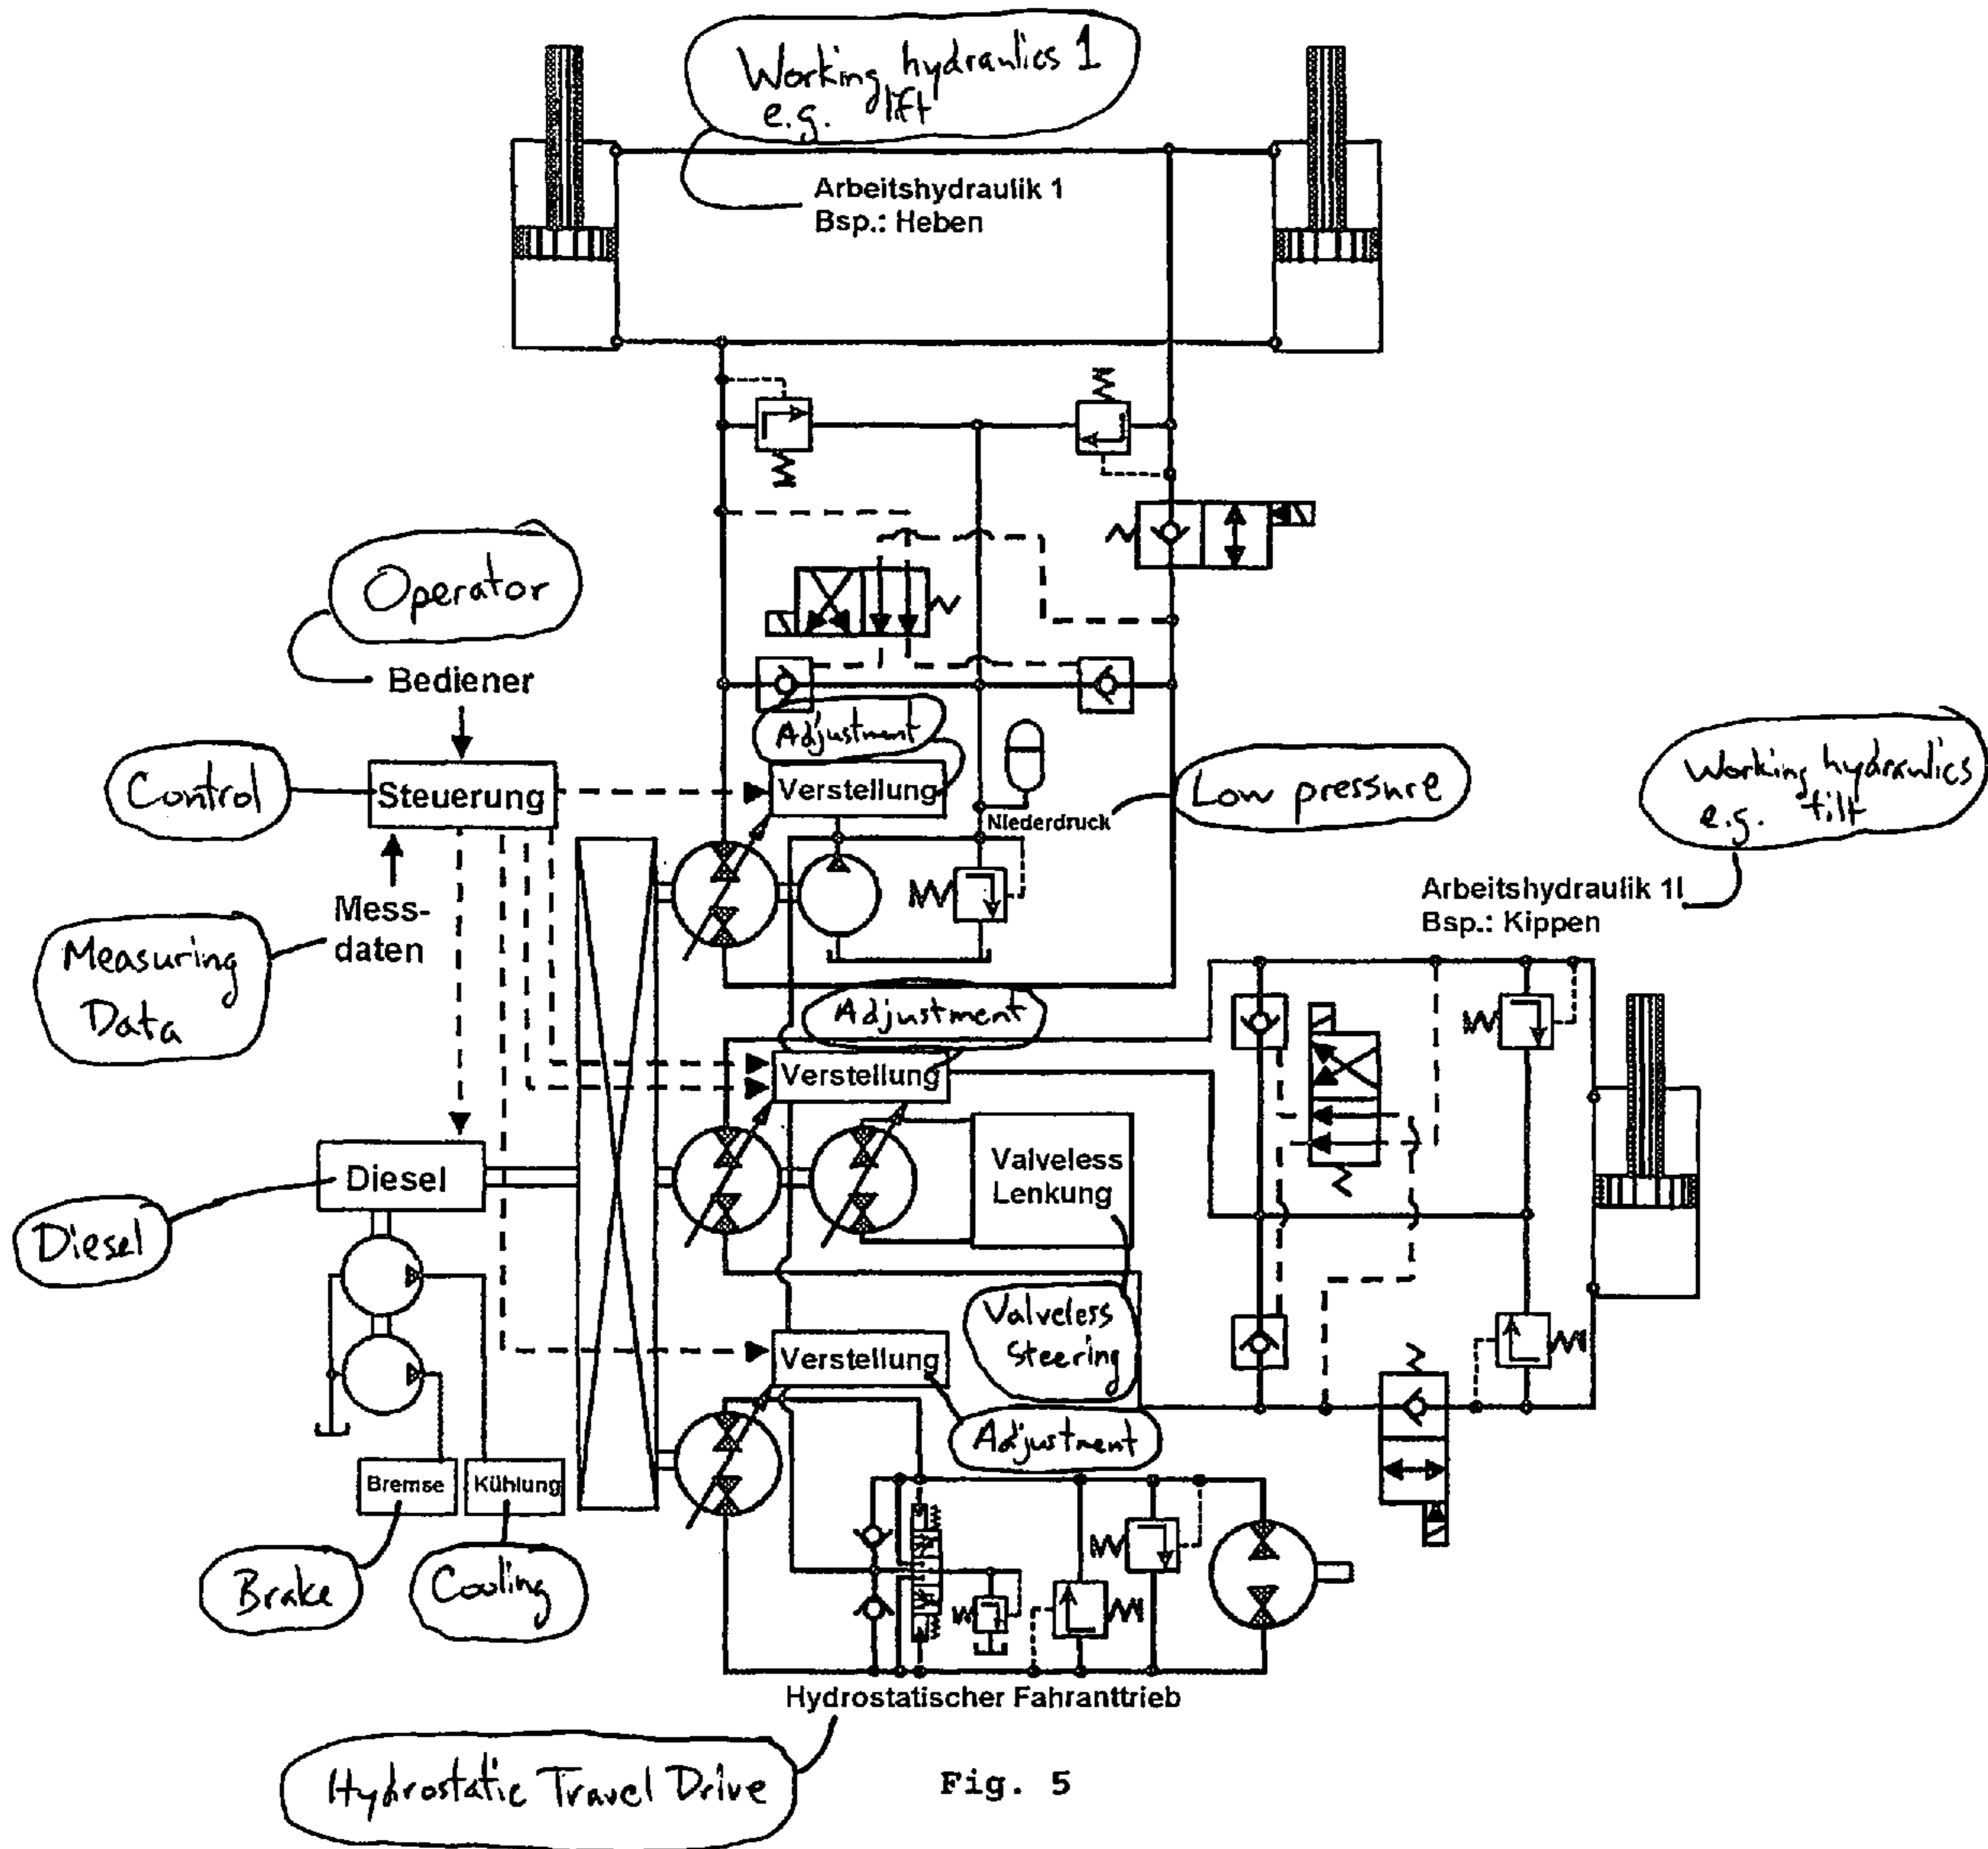 Working hydraulics 1
e.g. lift
Arbeitshydraulik 1
Bsp.: Heben
Operator
Bediener
Adjustment
Control
Steuerung
Verstellung
Niederdruck
Low pressure
Working hydraulics
e.g. tilt
Arbeitshydraulik 1I
Bsp.: Kippen
Measuring
Data
Mess-
daten
Adjustment
Verstellung
Diesel
Diesel
Valveless
Lenkung
Valveless
Steering
Verstellung
Adjustment
Bremse
Kühlung
Brake
Cooling
Hydrostatischer Fahranttrieb
Hydrostatic Travel Drive
Fig. 5